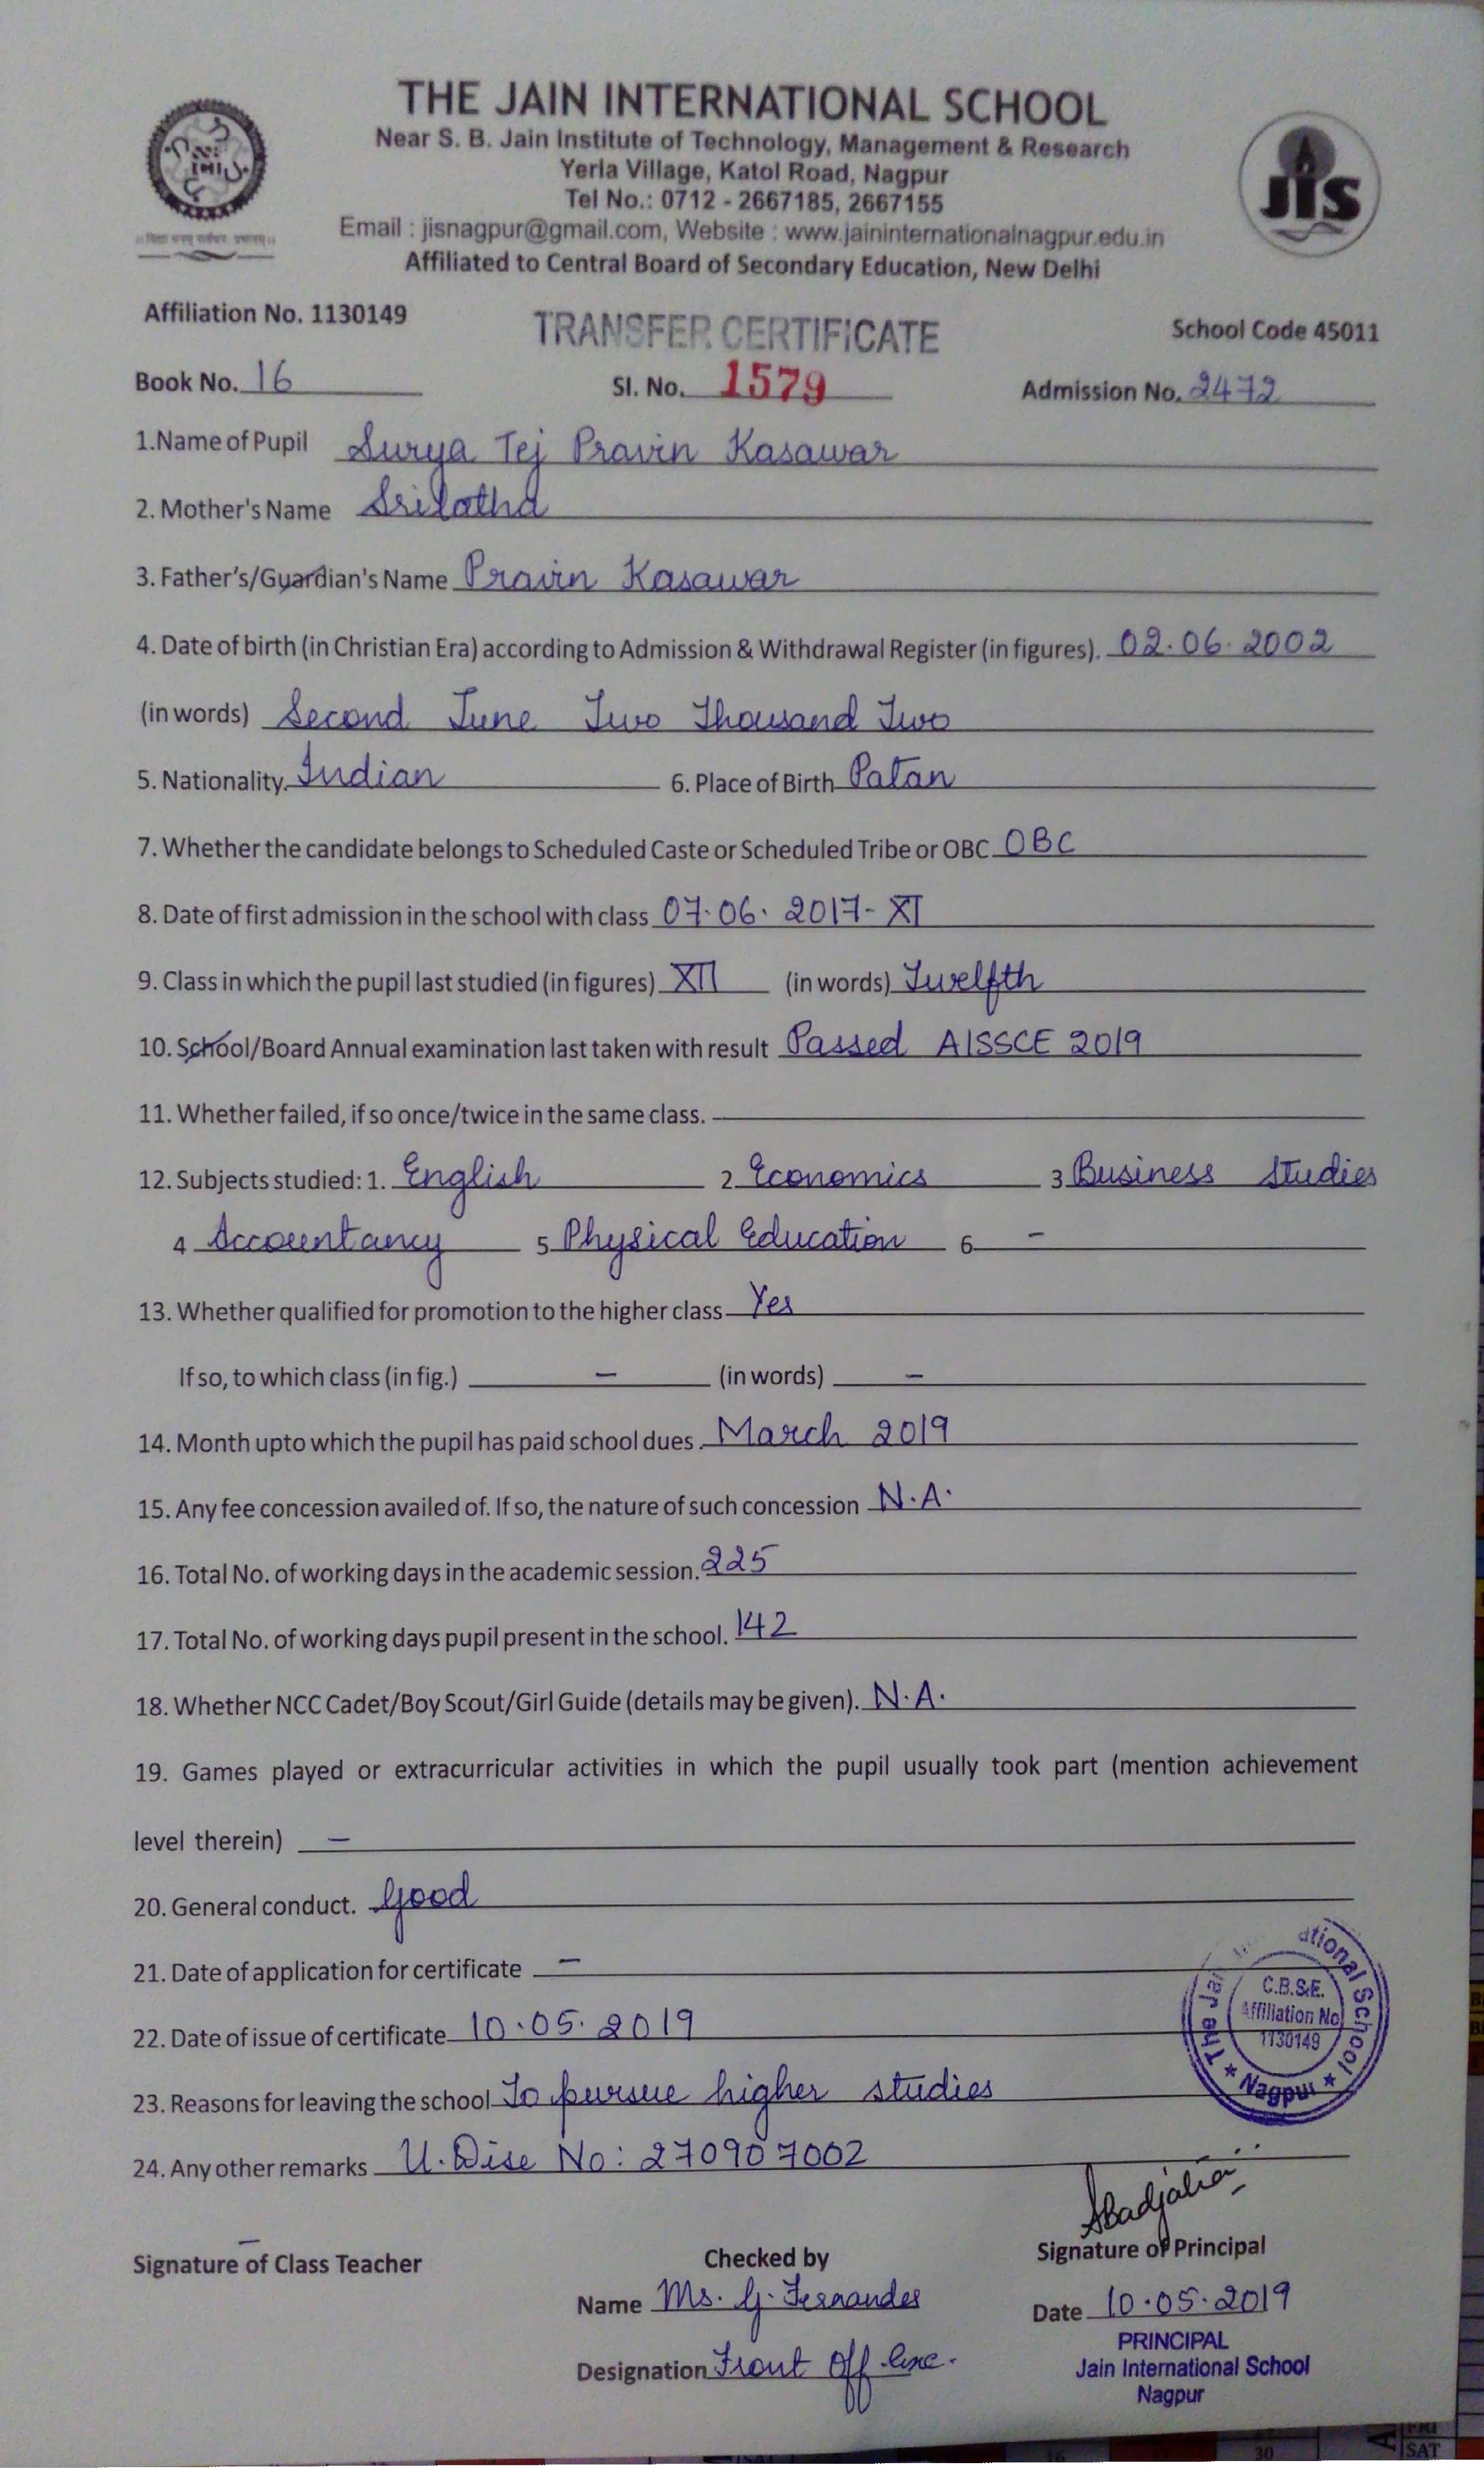 THE JAIN INTERNATIONAL SCHOOL
Near S. B. Jain Institute of Technology, Management & Research
Yerla Village, Katol Road, Nagpur
Tel No.: 0712 - 2667185, 2667155
Email : jisnagpur@gmail.com, Website : www.jaininternationalnagpur.edu.in
Affiliated to Central Board of Secondary Education, New Delhi
JIS
Affiliation No. 1130149 TRANSFER CERTIFICATE School Code 45011
Book No. 16 Sl. No. 1579 Admission No. 2472
1.Name of Pupil Surya Tej Pravin Kasawar
2. Mother's Name Srilatha
3. Father's/Guardian's Name Pravin Kasawar
4. Date of birth (in Christian Era) according to Admission & Withdrawal Register (in figures). 02.06.2002
(in words) Second June Two Thousand Two
5. Nationality. Indian 6. Place of Birth Patan
7. Whether the candidate belongs to Scheduled Caste or Scheduled Tribe or OBC OBC
8. Date of first admission in the school with class 07.06.2017- XI
9. Class in which the pupil last studied (in figures) XII (in words) Twelfth
10. School/Board Annual examination last taken with result Passed AISSCE 2019
11. Whether failed, if so once/twice in the same class.
12. Subjects studied: 1. English 2 Economics 3 Business Studies
4 Accountancy 5 Physical Education 6 -
13. Whether qualified for promotion to the higher class Yes
If so, to which class (in fig.) - (in words) -
14. Month upto which the pupil has paid school dues. March 2019
15. Any fee concession availed of. If so, the nature of such concession N.A.
16. Total No. of working days in the academic session. 225
17. Total No. of working days pupil present in the school. 142
18. Whether NCC Cadet/Boy Scout/Girl Guide (details may be given). N.A.
19. Games played or extracurricular activities in which the pupil usually took part (mention achievement
level therein) -
20. General conduct. Good
21. Date of application for certificate -
22. Date of issue of certificate 10.05.2019
23. Reasons for leaving the school To pursue higher studies
24. Any other remarks U.Dise No: 270907002
C.B.S.E.
Affiliation No
1130149
★ Nagpur ★
Signature of Class Teacher Checked by Signature of Principal
Name Ms. G. Fernandes Date 10.05.2019
Designation Front Off Exc.
PRINCIPAL
Jain International School
Nagpur
FRI
SAT
30